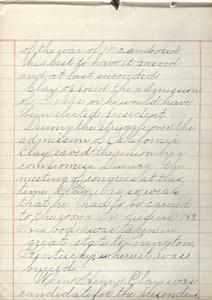 of the war of 1812 and did
his best to have it passed
and at last succeeded.
Clay opposed the admission
of Texas or he would have
been elected president.
During the struggle over the
admission of California
Clay saved the union by a
compromise. During the
meeting of congress at this
time Clay was so weak
that he had to be carried
to the room. He died in
his body was taken in
great state to Lexington,
Kentucky, where it was
buried.
When Henry Clay was
candidate for the